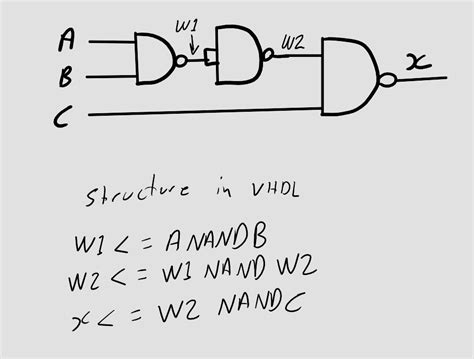 A
W1
W2
x
B
C
structure in VHDL
W1 <= A NAND B
W2 <= W1 NAND W2
x <= W2 NAND C